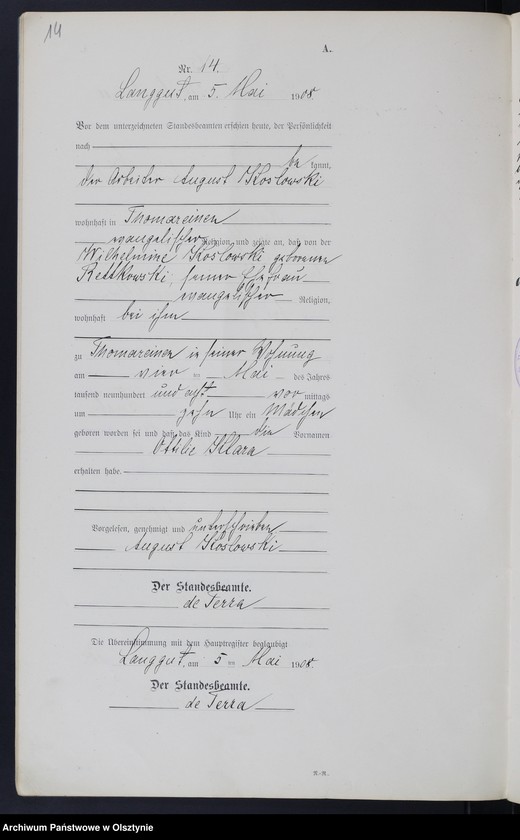 14
A.
Nr. 14.
Langgut, am 5. Mai 1908.
Vor dem unterzeichneten Standesbeamten erschien heute, der Persönlichkeit
nach
be kannt,
der Arbeiter August Koslowski
wohnhaft in Thomareinen
evangelischer Religion, und zeigte an, daß von der
Wilhelmine Koslowski geborenen
Rettkowski, seiner Ehefrau
evangelischer Religion,
wohnhaft bei ihm
zu Thomareinen in seiner Wohnung
am vier ten Mai des Jahres
tausend neunhundert und acht vor mittags
um zehn Uhr ein Mädchen
geboren worden sei und daß das Kind die Vornamen
Ottilie Klara
erhalten habe.
Vorgelesen, genehmigt und unterschrieben
August Koslowski
Der Standesbeamte.
de Terra
Die Übereinstimmung mit dem Hauptregister beglaubigt
Langgut, am 5 ten Mai 1908.
Der Standesbeamte.
de Terra
R.-R.
Archiwum Państwowe w Olsztynie